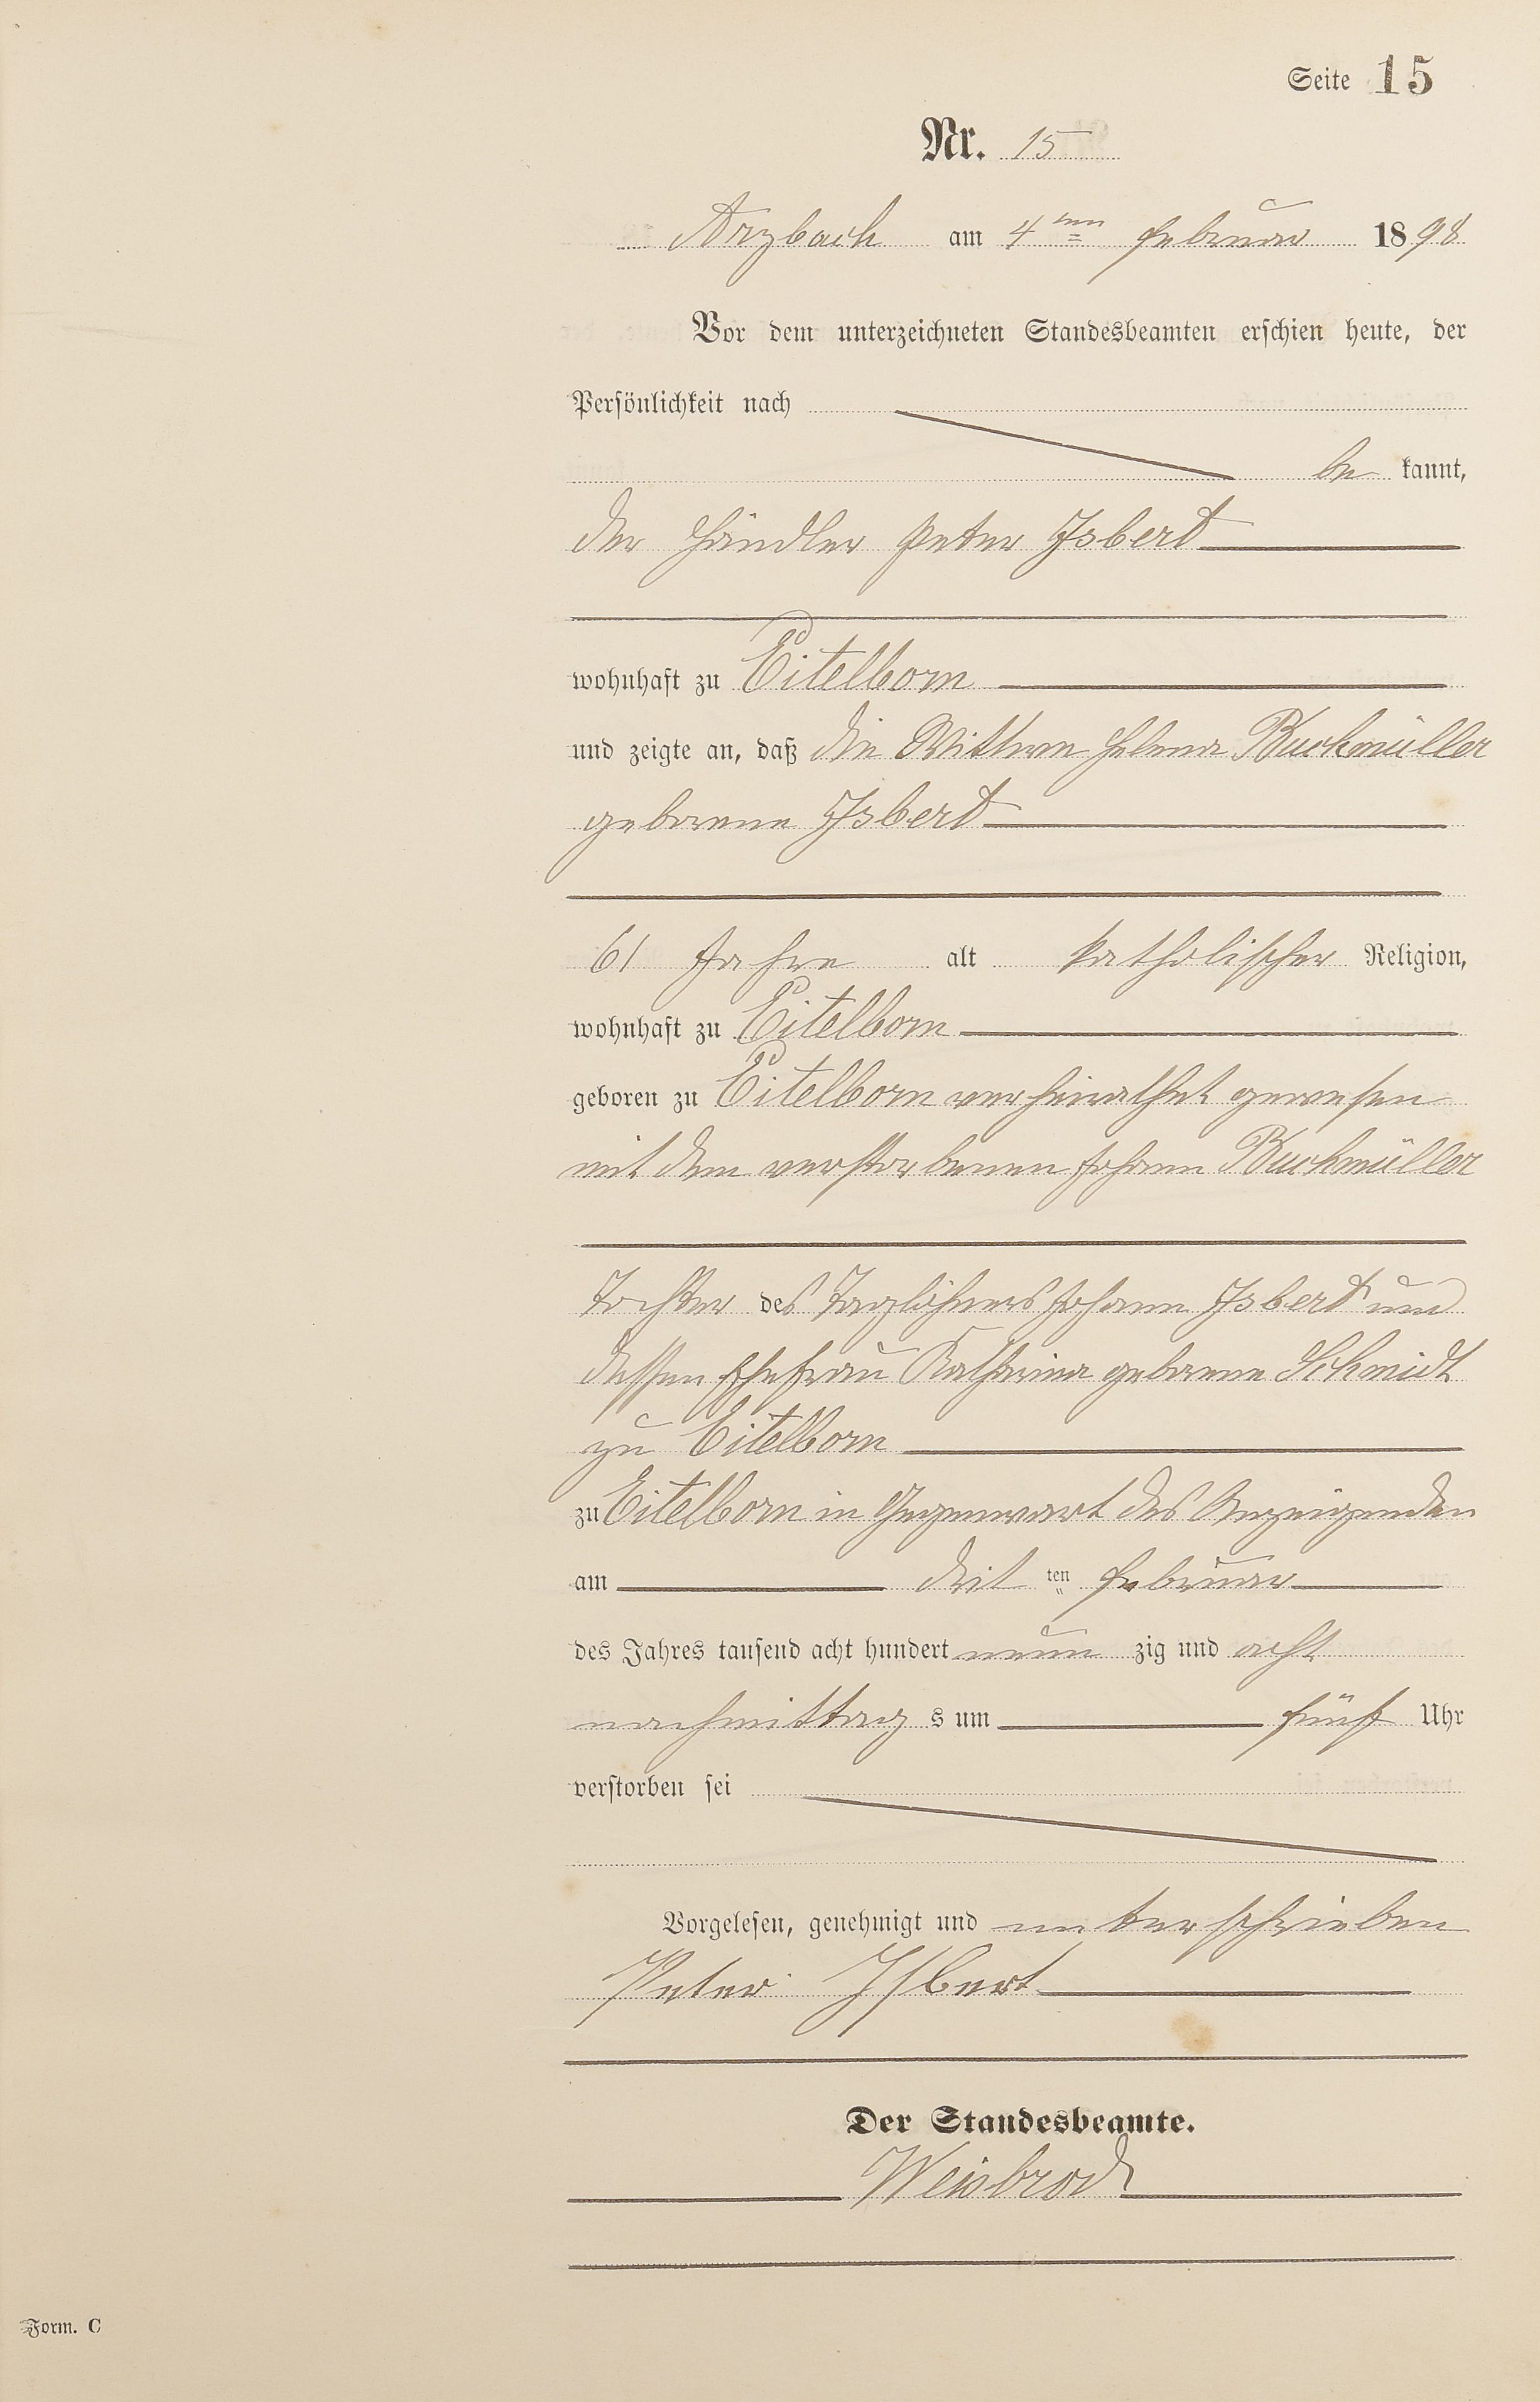 Seite 15
Nr. 15
Arzbach am 4ten Februar 1898
Vor dem unterzeichneten Standesbeamten erschien heute, der
Persönlichkeit nach
be kannt,
der Händler Peter Isbert
wohnhaft zu Eitelborn
und zeigte an, daß die Wittwe Helena Buchmüller
geborene Isbert
61 Jahre alt katholischer Religion,
wohnhaft zu Eitelborn
geboren zu Eitelborn verheirathet gewesen
mit dem verstorbenen Johann Buchmüller
Tochter des Taglöhners Johann Isbert und
dessen Ehefrau Katharina geborene Schmidt
zu Eitelborn
zu Eitelborn in Gegenwart des Anzeigenden
am drit ten Februar
des Jahres tausend acht hundert neun zig und acht
nachmittag s um fünf Uhr
verstorben sei
Vorgelesen, genehmigt und unterschrieben
Peter Isbert
Der Standesbeamte.
Weisbrod
Form. C